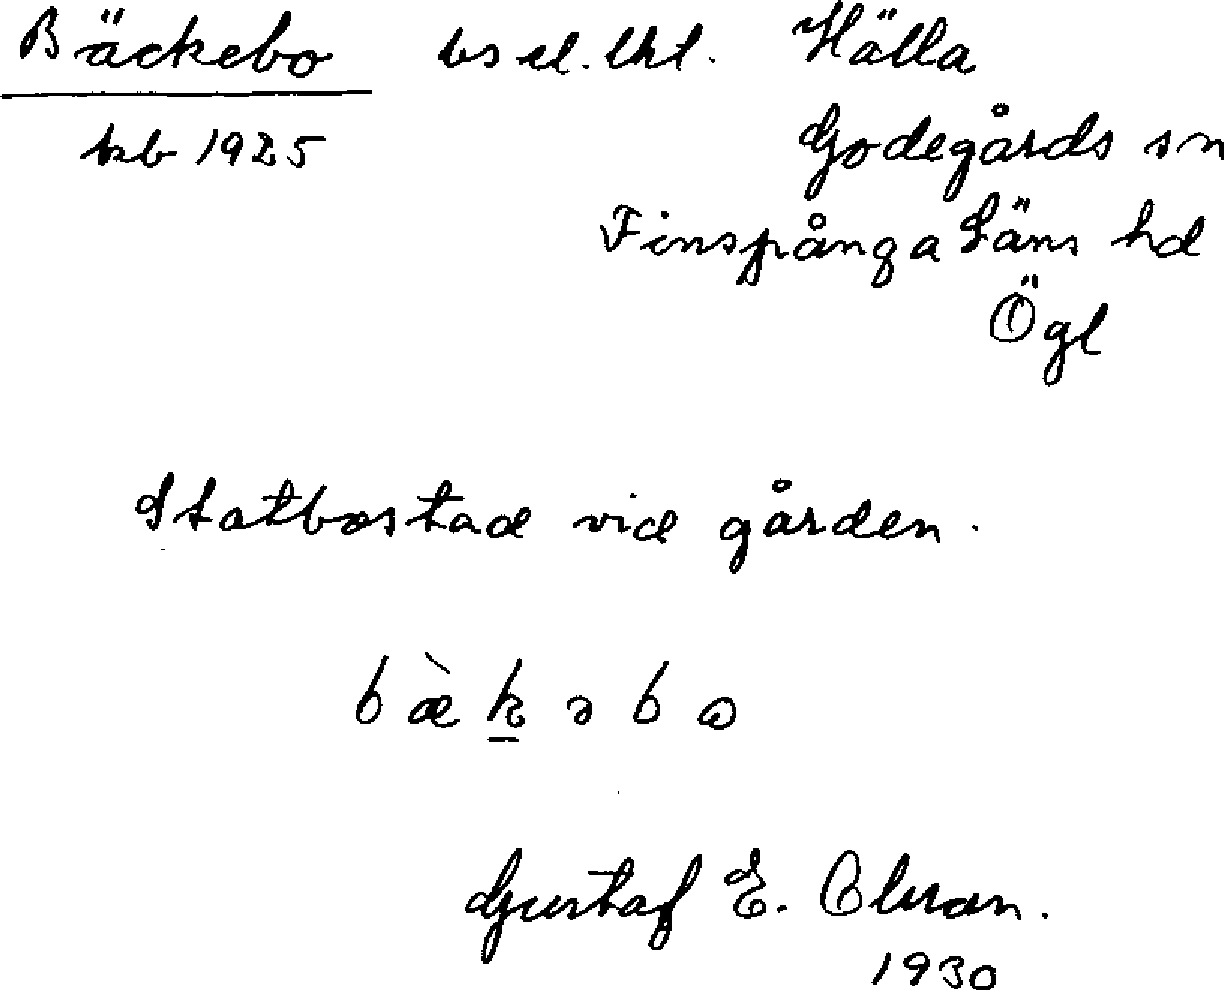 Bäckebo bs el. lht. Hälla
kb 1925 Godegårds sn
Finspånga Läns hd
Ögl
Statbostad vid gården.
bæ̀kəbo
Gustaf E. Olson.
1930